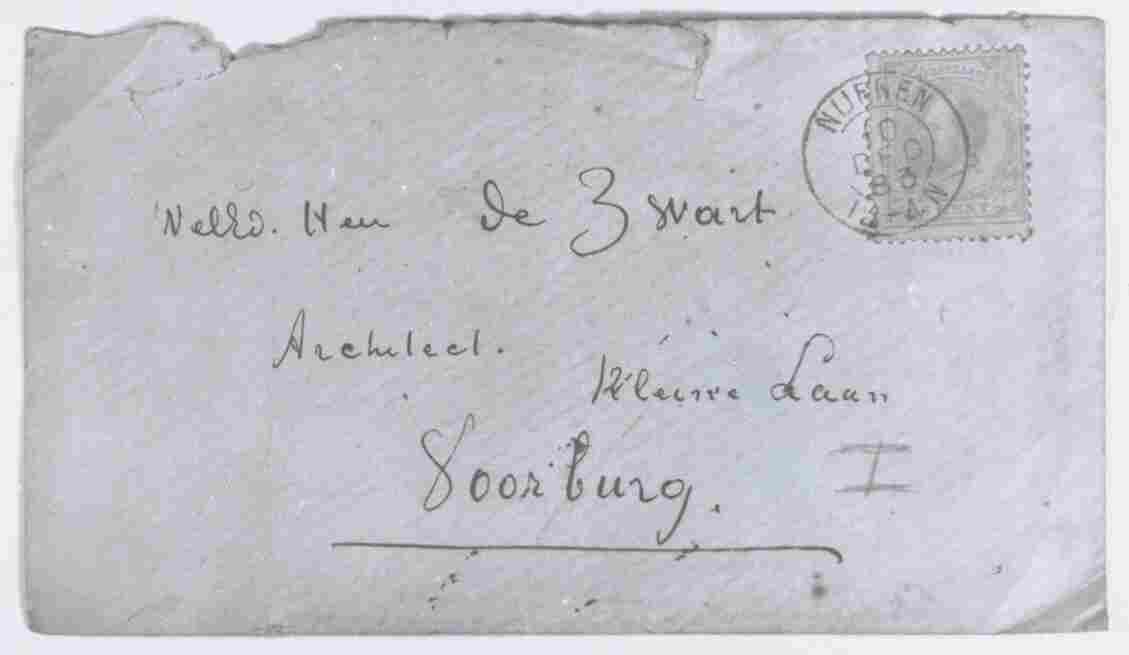 NUENEN
12-4N
WelEd. Heer de Zwart
Architect.
Kleine Laan
Voorburg.
I